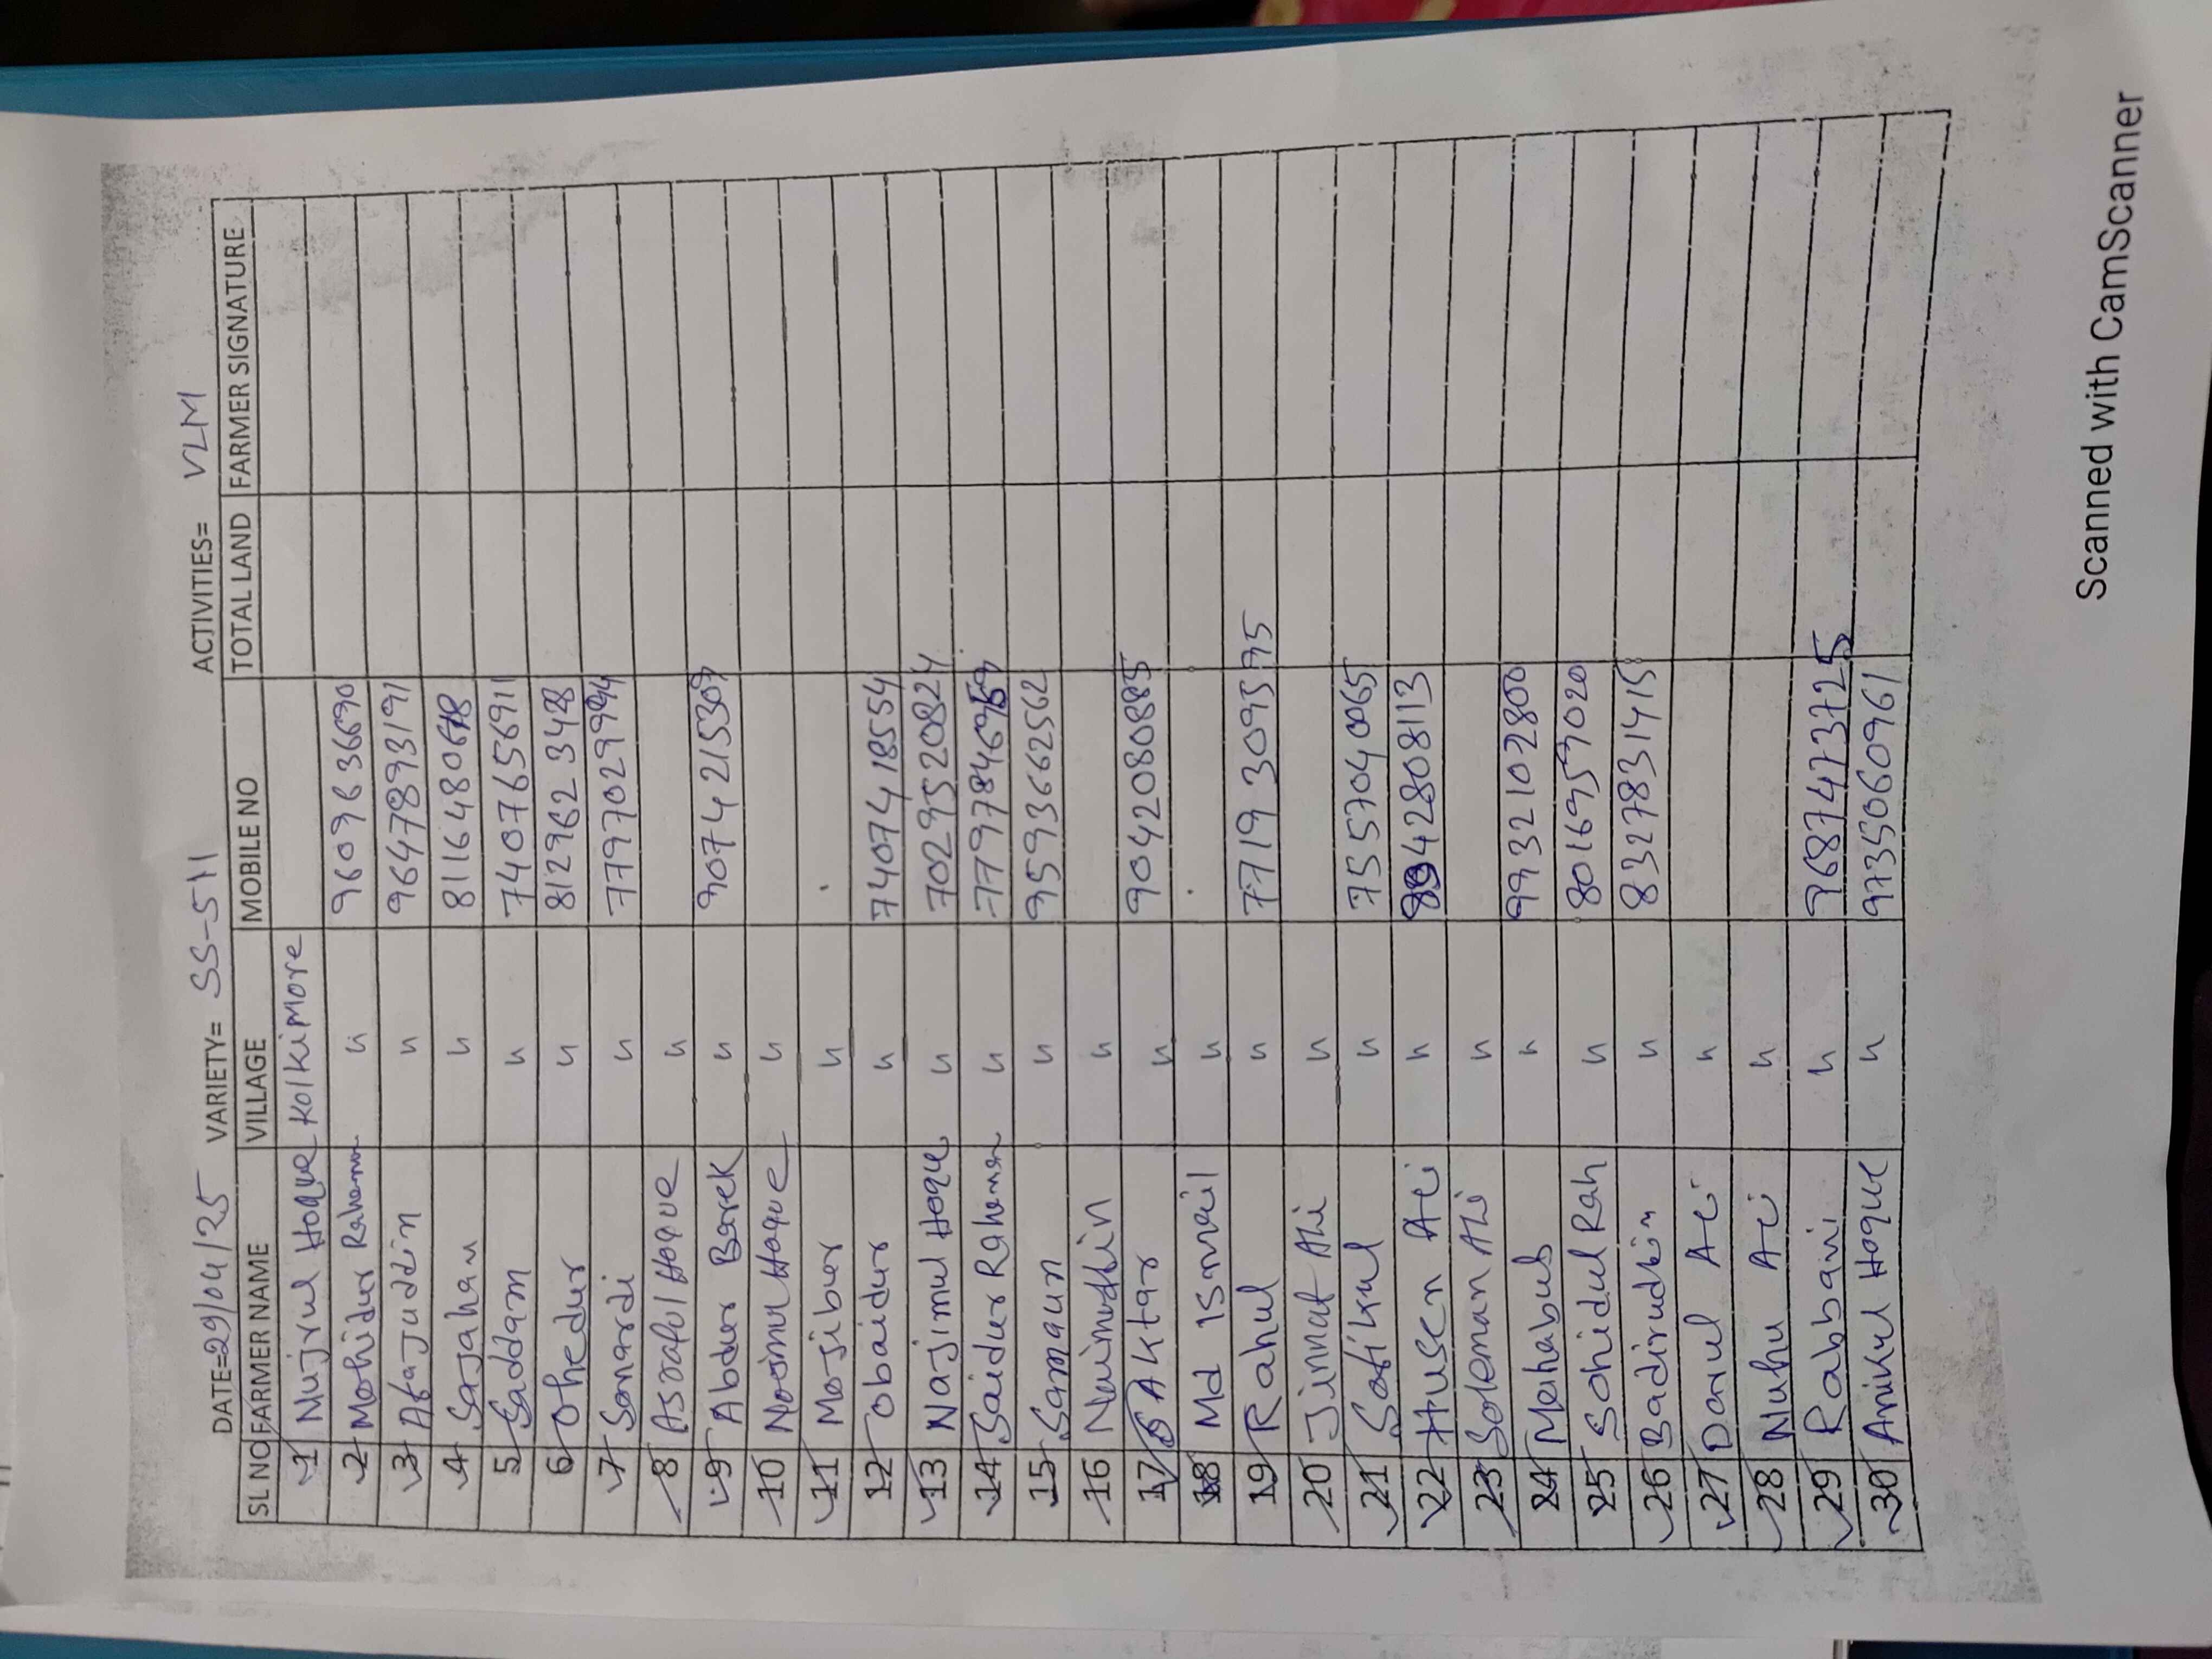 DATE=29/04/25 VARIETY= SS-511 ACTIVITIES= VLM
SL NO FARMER NAME VILLAGE MOBILE NO TOTAL LAND FARMER SIGNATURE
1 Nujrul Hoque Kolkimore
2 Mohidur Rahaman " 9609636690
3 Afajuddin " 9647893191
4 Sajahan " 8116480678
5 Saddam " 7407656911
6 Ohedur " 8129623428
7 Sonardi " 7797029994
8 Asraful Hoque "
9 Abdur Barek " 9074215309
10 Noimul Haque "
11 Mojibur "
12 Obaidur " 7407418554
13 Najimul Hoque " 7029520824
14 Saidur Rahaman "
15 Samaun " 9593662562
16 Naimuddin "
17 Aktar " 9042080885
18 Md Ismail "
19 Rahul " 7719309595
20 Jinnat Ali "
21 Safikul " 7557040065
22 Husen Ali " 8942808113
23 Soleman Ali "
24 Mahabub " 9932102800
25 Sohidul Rah " 8016957020
26 Badiruddin " 8327831415
27 Darul Ali "
28 Nuhu Ali "
29 Rabbani " 9687473725
30 Anikul Hoque " 9735060961
Scanned with CamScanner